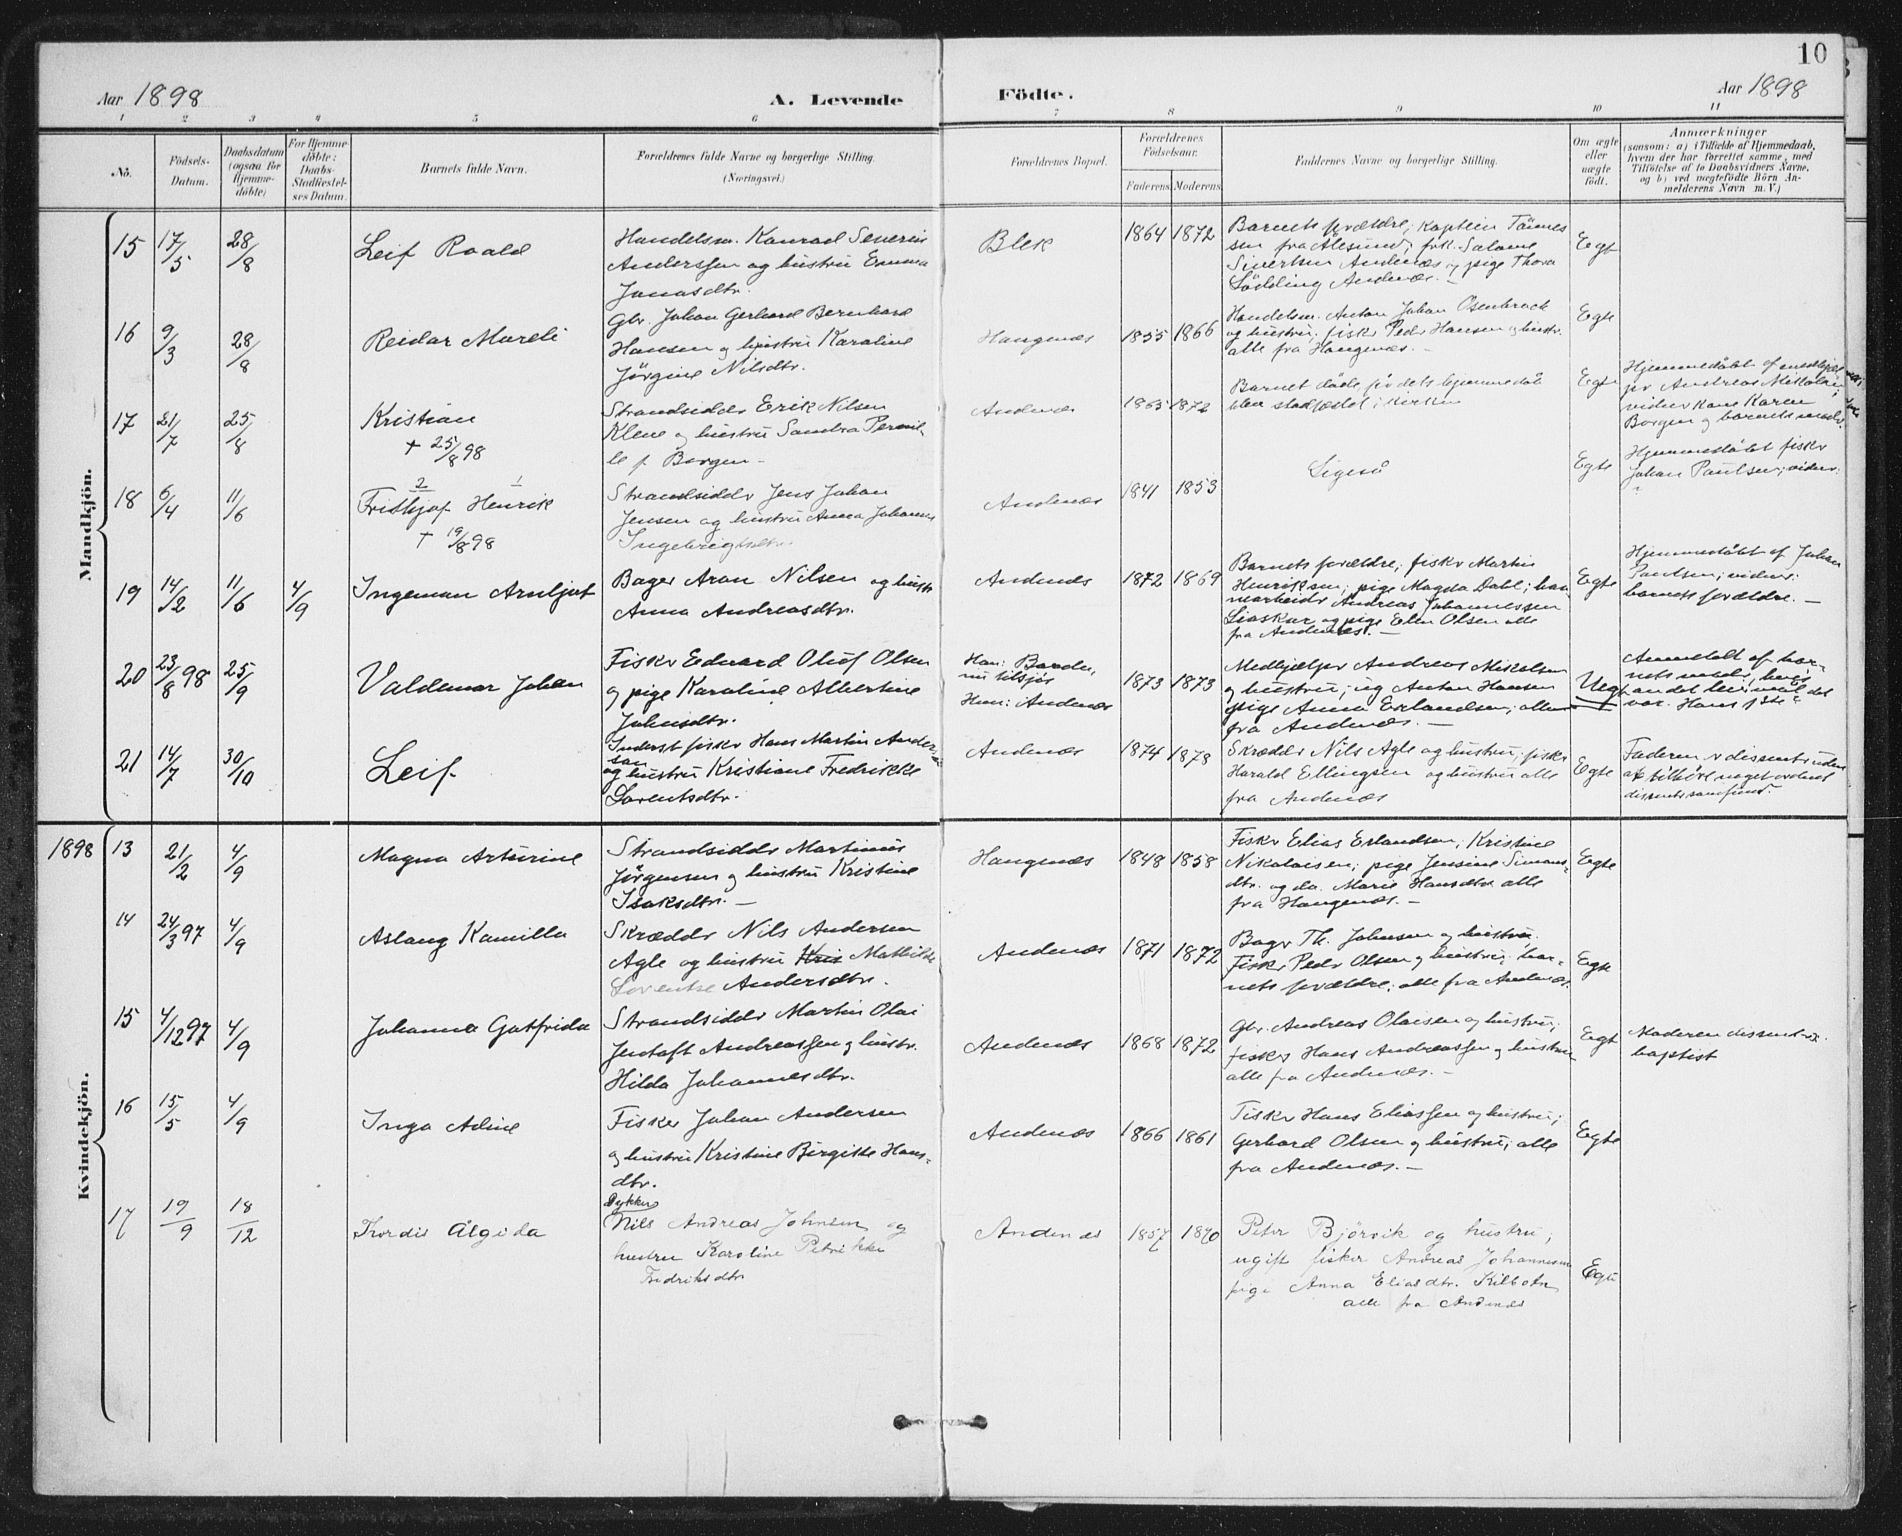 10
Aar 1898
A. Levende
Födte.
Aar 1898
1 2 3 4 5 6 7 8 9 10 11
No.
Födsels-
Datum.
Daabsdatum
(ogsaa for
Hjemme-
döbte)
For Hjemme-
döbte:
Daabs-
Stadfæstel-
ses Datum.
Barnets fulde Navn.
Forældrenes fulde Navne og borgerlige Stilling.
(Næringsvei.)
Forældrenes Bopæl.
Forældrenes
Födselsaar.
Faderens Moderens
Faddernes Navne og borgerlige Stilling.
Om ægte
eller
uægte
födt.
Anmærkninger
(saasom: a) i Tilfælde af Hjemmedaab,
hvem der har forrettet samme, med
Tilföielse af to Daabsvidners Navne,
og b) ved uægtefödte Börn An-
melderens Navn m. V.)
Mandkjön.
15 17/5 28/8
Leif Roald
Handelsm. Konrad Severin
Anderssen og hustru Emma
Jonasdtr.
Blek
1864 1872
Barnets forældre, Kaptein Tönnes
sen fra Ålesund; frk. Salome
Sivertsen Andenæs og pige Thora
Lödding Andenæs. —
Egt
16 9/3 28/8
Reidar Mareli
Gbr. Johan Gerhard Bernhard
Hansen og hustru Karoline
Jørgine Nilsdtr.
Haugenæs
1855 1866
Handelsm. Anton Johan Osenbrock
og hustru; fisker Peder Hansen og hustr.
alle fra Haugenæs. —
Egte
17 21/7 25/8
Kristian
+ 25/8 98
Strandsidder Erik Nilsen
Klene og hustru Sandra Pernil-
le f. Borgen —
Andenæs
1865 1872
Barnet døde før dets hjemmedåb
blev stadfæstet i kirken
Egte
Hjemmedøbt af medhjæl
per Andreas Mikalsen
vidner kone Karen
Borgen og barnets moder.
18 6/4 11/6
2 1
Fridtjof Henrik
+ 19/8 98
Strandsidder Jens Johan
Jensen og hustru Anna Johanna
Ingebrigtsdtr.
Andenæs
1841 1853
Ligeså
Egte
Hjemmedøbt fisker
Johan Paulsen; vidner:
"
19 14/2 11/6 4/9
Ingeman Arnljot
Bager Aron Nilsen og hustr.
Anna Andreasdtr.
Andenæs
1872 1869
Barnets forældre; fisker Martin
Henriksen; pige Magda Dahl; han-
marbeider Andreas Johannessen
Liaskar og pige Elen Olsen alle
fra Andenæs. —
Egte
Hjemmedøbt af Johan
Paulsen; vidner:
barnets forældre. —
20 23/8 98 25/9
Valdemar Johan
Fisker Edvard Oluf Olsen
og pige Karoline Albertine
Johnsdtr.
Han: Bardu,
nu tilsjøs
Hun: Andenæs
1873 1873
Medhjælper Andreas Mikalsen
og hustru; ug Anton Hansen
pige Anna Erlandsen; alle
fra Andenæs. —
Uegt
Anmeldt af bar-
nets moder, hvis
andet leiermål det
var. Hans 1ste
21 14/7 30/10
Leif
Inderst fisker Hans Martin Ander-
sen
og hustru Kristiane Fredrikke
Lorentsdtr.
Andenæs
1874 1873
Skrædder Nils Agle og hustru; fisker
Harald Ellingsen og hustru alle
fra Andenæs
Egte
Faderen er dissenter uden
at tilhøre noget ordnet
dissentersamfund.
Kvindekjön.
1898 13 21/2 4/9
Magna Arturine
Strandsidder Martinus
Jørgensen og hustru Kristine
Isaksdtr. —
Haugenæs
1848 1858
Fisker Elias Erlandsen; Kristine
Nikolaisen; pige Jensine Simons-
dtr. og do. Marie Hansdtr. alle
fra Haugenæs. —
Egte
14 24/3 97 4/9
Aslaug Kamilla
Skrædder Nils Andersen
Agle og hustru Kris Mathilde
Lorentse Andersdtr.
Andenæs
1871 1872
Bager Th. Johnsen og hustru.
Fisker Peder Olsen og hustru; bar-
nets forældre; alle fra Andenæs.
Egte
15 4/12 97 4/9
Johanna Gotfrida
Strandsidder Martin Olai
Jentoft Andreassen og hustr.
Hilda Johannesdtr.
Andenæs
1868 1872
Gbr. Andreas Olaisen og hustru;
fisker Hans Andreassen og hustru
alle fra Andenæs. —
Egt
Moderen dissenter
baptist
16 15/5 4/9
Inga Adine
Fisker Johan Andersen
og hustru Kristine Birgitte Hans-
dtr.
Andenæs
1866 1861
Fisker Hans Eliassen og hustru;
Gerhard Olsen og hustru; alle
fra Andenæs. —
Egte
17 19/9 18/12
Thordis Algida
Dykker
Nils Andreas Johnsen og
hustru Karoline Petrikke
Fredriksdtr
Andenæs
1857 1870
Peter Bjørvik og hustru,
ugift fisker Andreas Johannesen
pige Anna Eliasdtr. Kilbotn
alle fra Andenæs
Egte